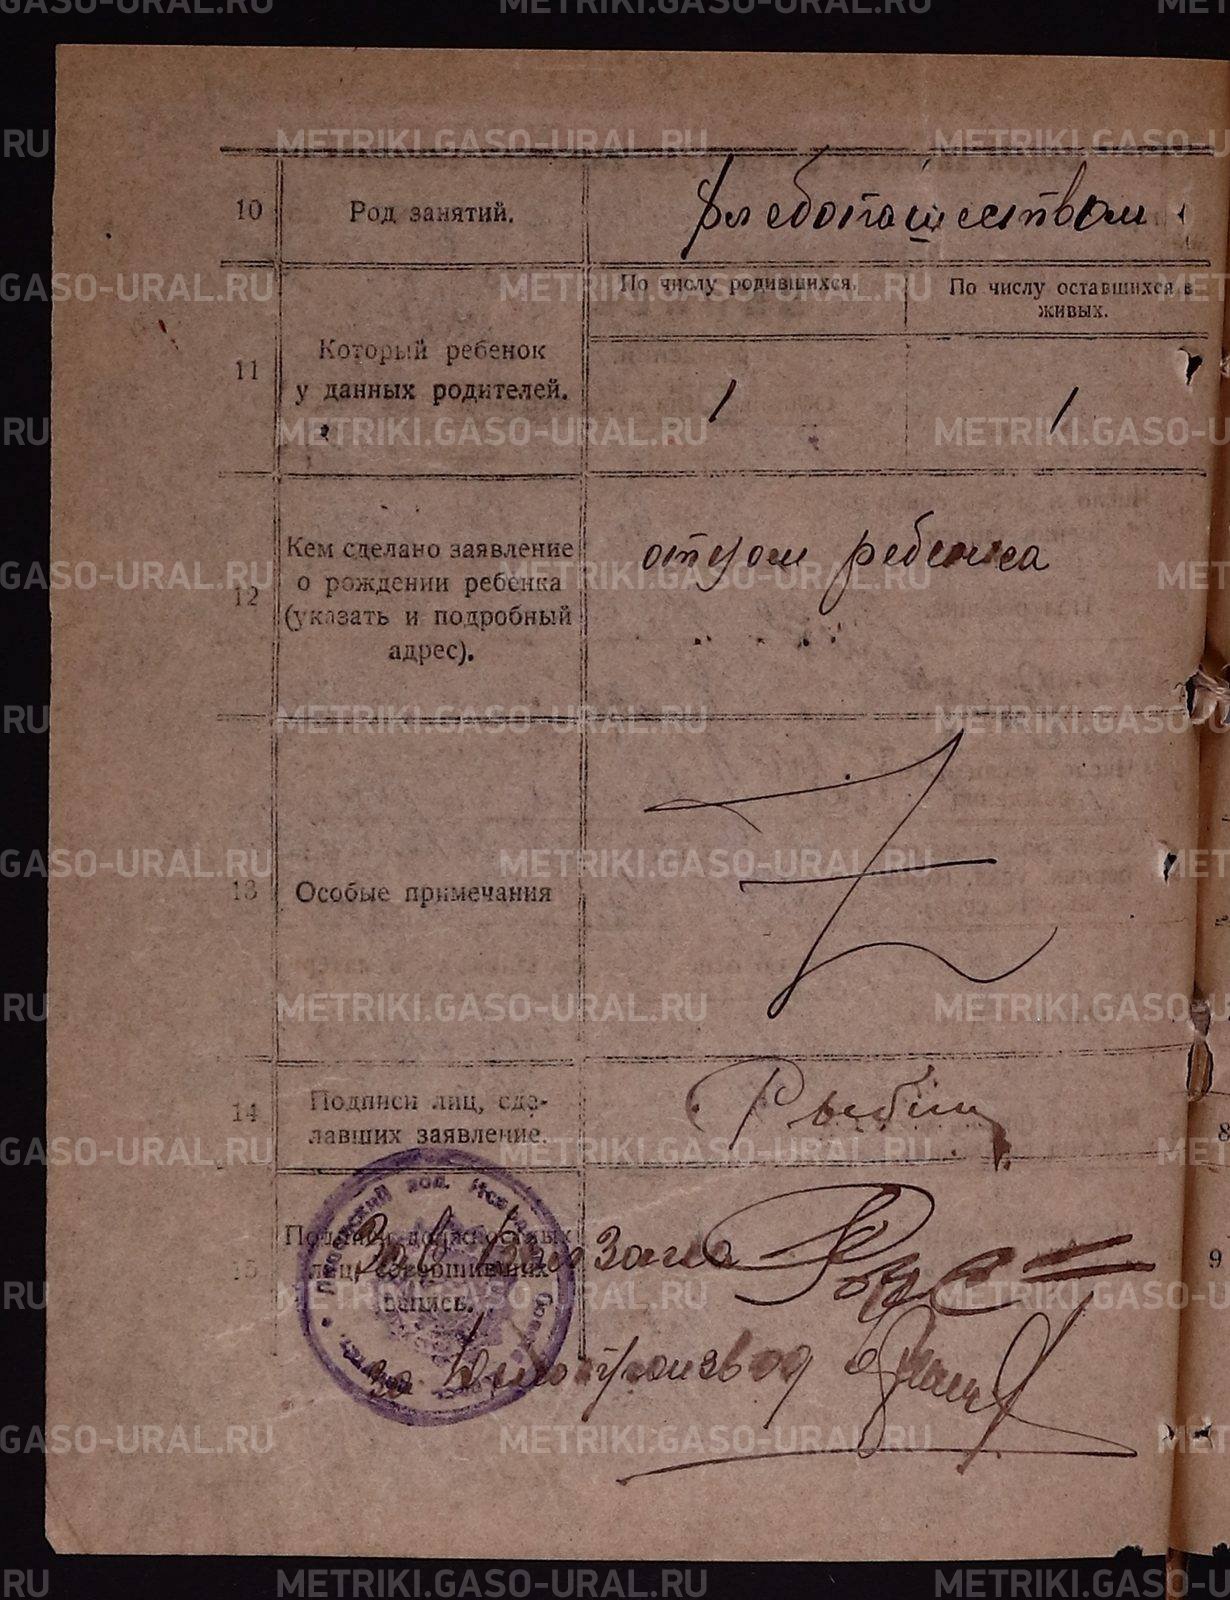 10
Род занятий.
хлебопашеством
11
Который ребенок
у данных родителей.
По числу родившихся.
По числу оставшихся в
живых.
1
1
12
Кем сделано заявление
о рождении ребенка
(указать и подробный
адрес).
отцом ребенка
13
Особые примечания
14
Подписи лиц, сде-
лавших заявление.
Рыбин
15
Подписи должностных
лиц, совершивших
запись.
Зав
загса
За делопроизвод
8
9
METRIKI.GASO-URAL.RU